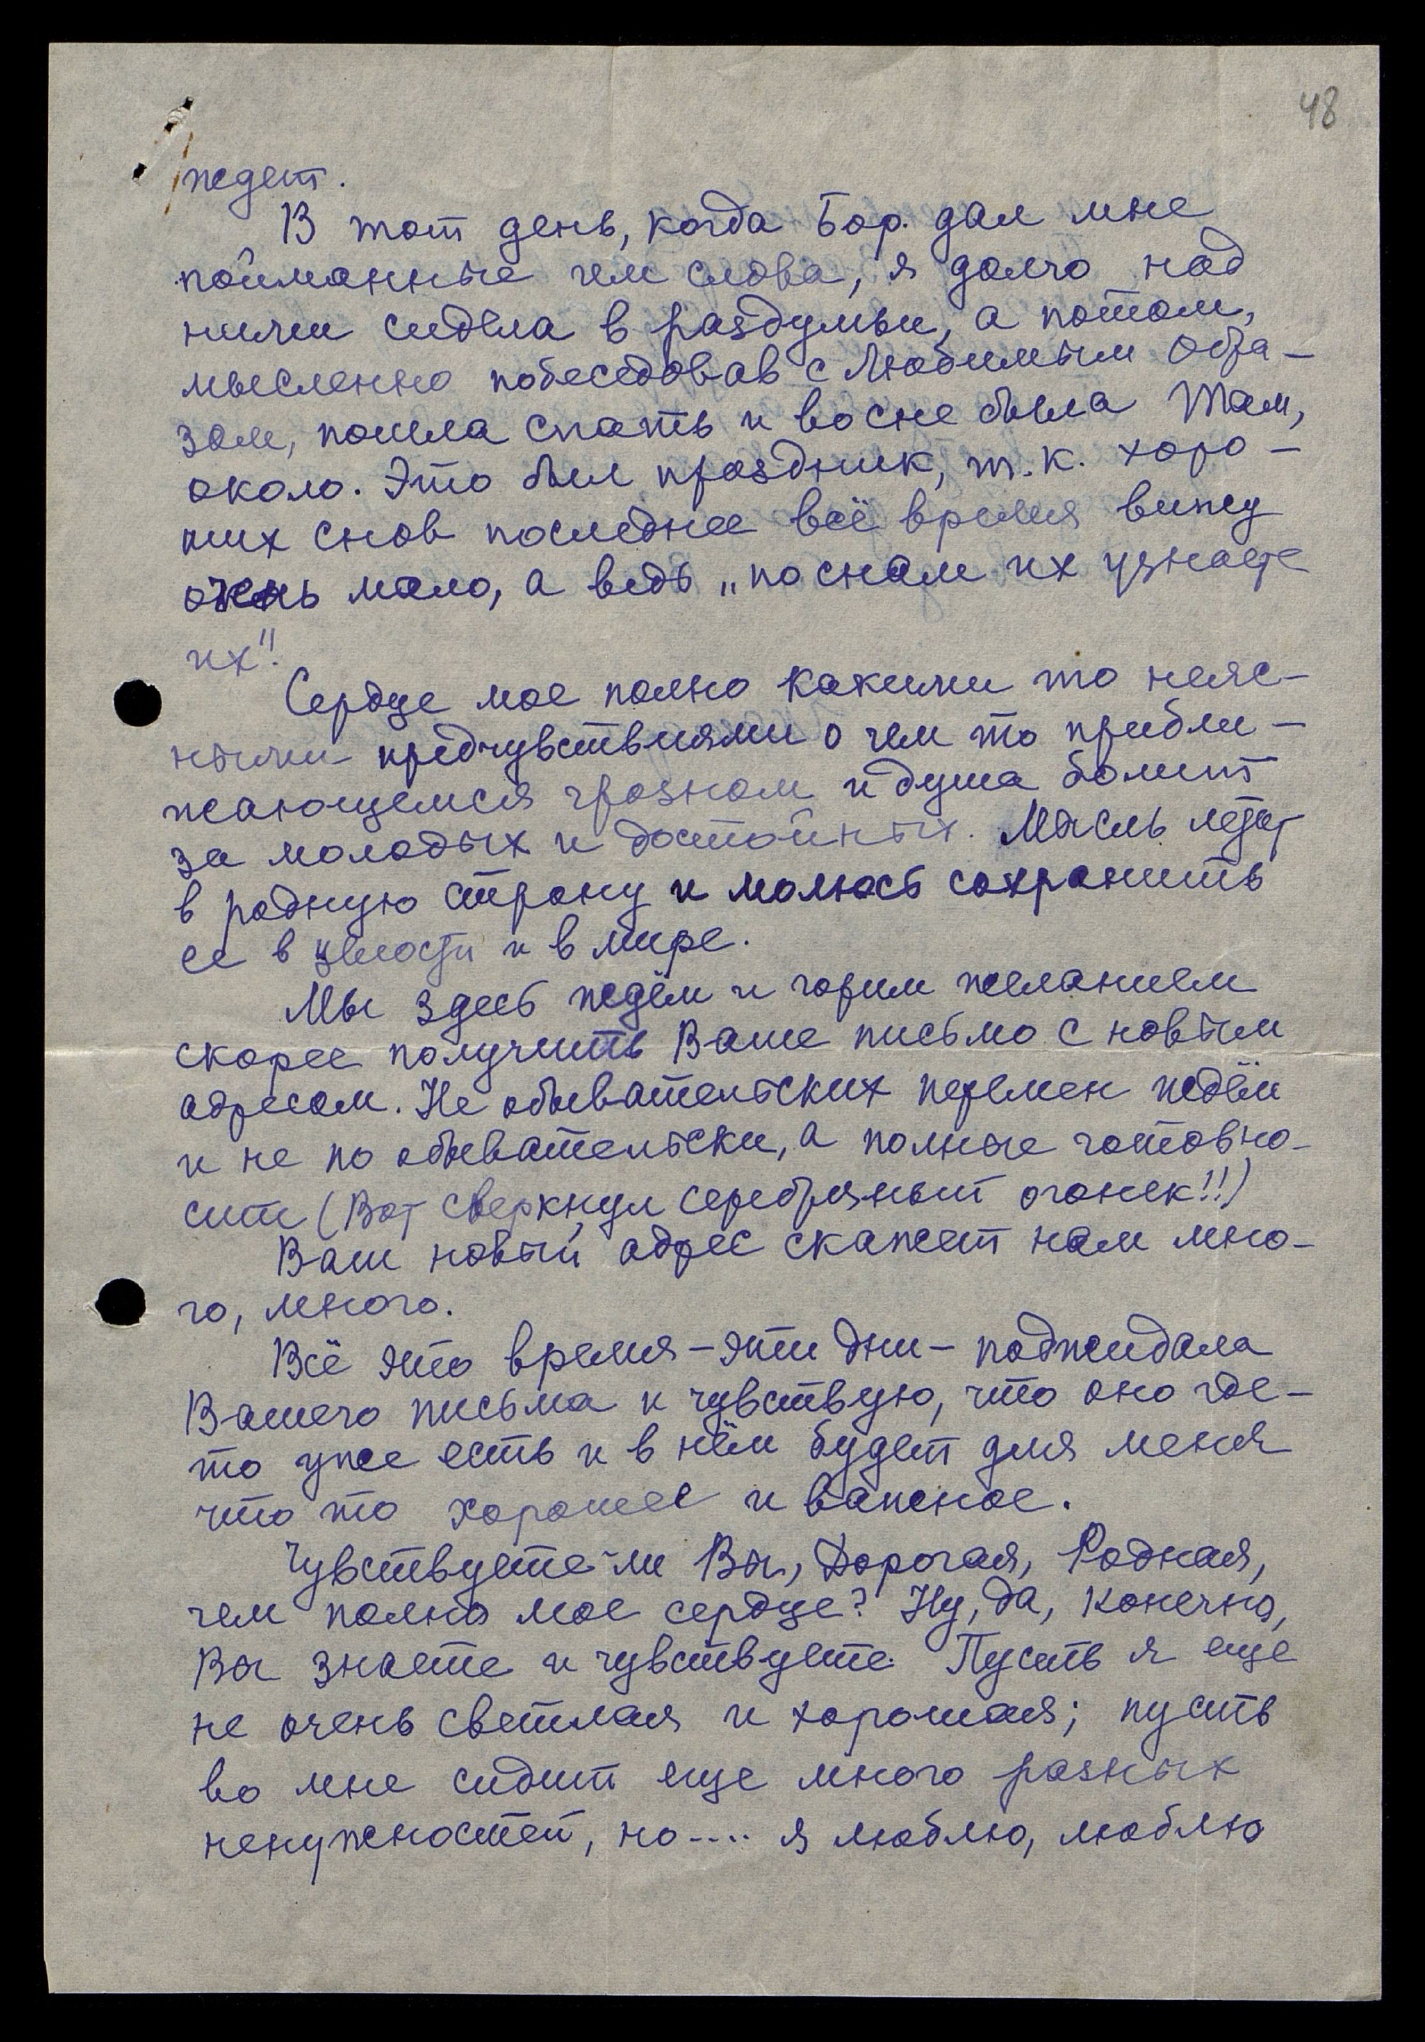 48
ждет.
В тот день, когда Бор. дал мне
пойманные им слова, я долго над
ними сидела в раздумьи, а потом,
мысленно побеседовав с Любимым Обра-
зом, пошла спать и во сне была Там,
около. Это был праздник, т.к. хоро-
ших снов последнее всё время вижу
очень мало, а ведь „по снам их узнаете
их".
Сердце мое полно какими то неяс-
ными предчувствиями о чем то прибли-
жающемся грозном и душа болит
за молодых и достойных. Мысль летит
в родную страну и молюсь сохранить
ее в целости и в мире.
Мы здесь ждём и горим желанием
скорее получить Ваше письмо с новым
адресом. Не обывательских перемен ждём
и не по обывательски, а полные готовно-
сти (Вот сверкнул серебряный огонек!!)
Ваш новый адрес скажет нам мно-
го, много.
Всё это время – эти дни – поджидала
Вашего письма и чувствую, что оно где-
то уже есть и в нём будет для меня
что то хорошее и важное.
Чувствуете-ли Вы, Дорогая, Родная,
чем полно мое сердце? Ну, да, конечно,
Вы знаете и чувствуете. Пусть я еще
не очень светлая и хорошая; пусть
во мне сидит еще много разных
ненужностей, но.... я люблю, люблю